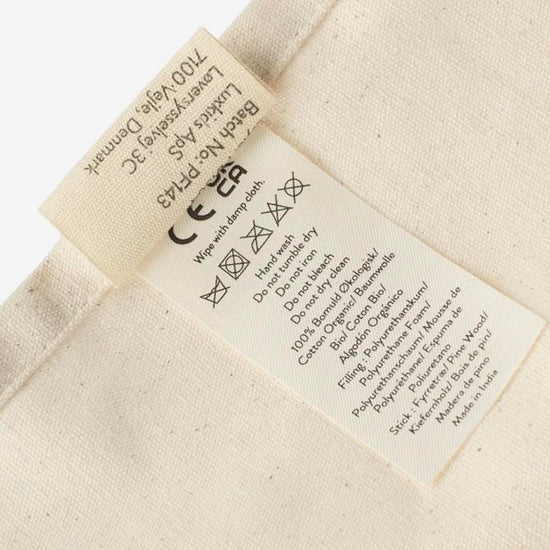 Batch No: PF143
Luxkids ApS
Løversysselvej 3C
7100 Vejle, Denmark
CE
CA
Wipe with damp cloth.
Hand wash
Do not tumble dry
Do not iron
Do not bleach
Do not dry clean
100% Bomuld Økologisk/
Cotton Organic/ Baumwolle
Bio/ Coton Bio/
Algodón Orgánico
Filling : Polyurethanskum/
Polyurethane Foam/
Polyurethanschaum/ Mousse de
Polyuréthane/ Espuma de
Poliuretano
Stick : Fyrretræ/ Pine Wood/
Kiefernholz/ Bois de pin/
Madera de pino
Made in India